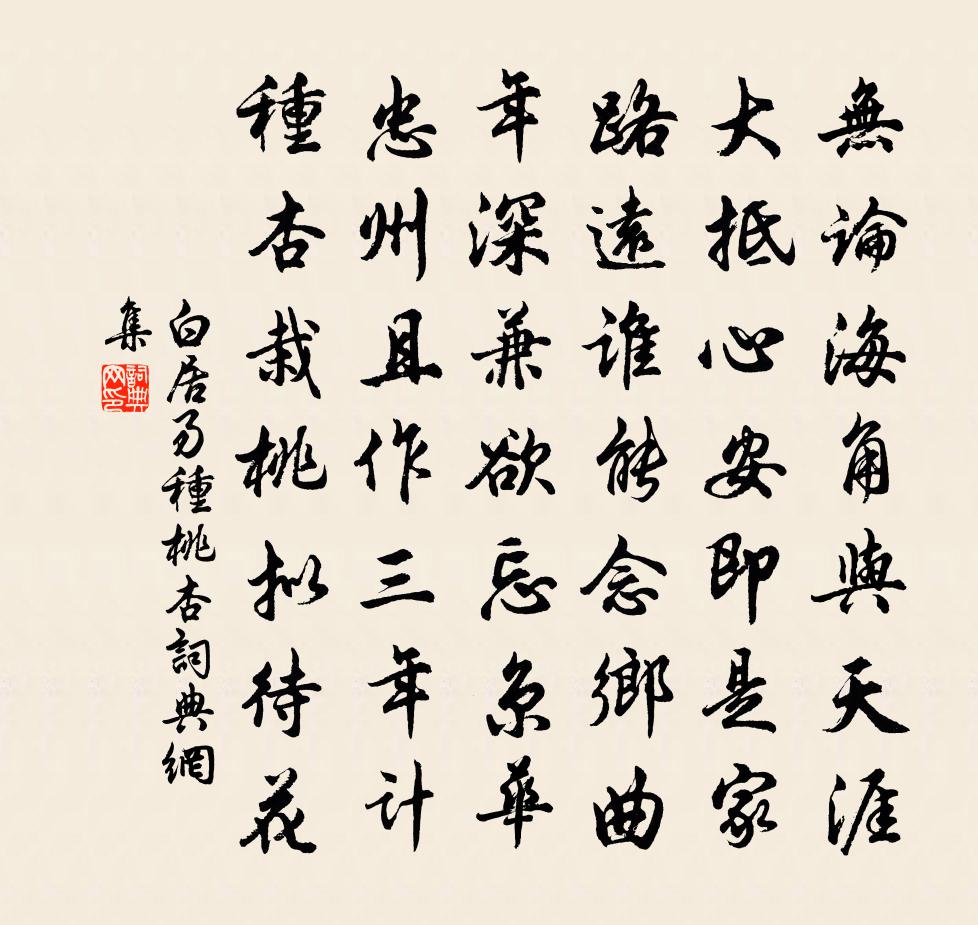 無論海角與天涯
大抵心安即是家
路遠誰能念鄉曲
年深兼欲忘京華
忠州且作三年計
種杏栽桃拟待花
白居易種桃杏詞典網
集
詞典网印